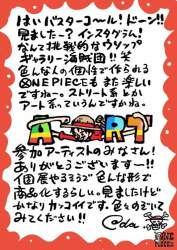 はいバスターコ〜ル!ドーン!!
見ました〜?インスタグラム!
なんて挑戦的なウソップ
ギャラリー海賊団!!笑
色んな人の個性で作られる
ONE PIECEもまた楽しい
ですね〜。ストリート系とか
アート系っていうんですかね。
ART
参加アーティストのみなさん!
ありがとうございますーー!!
個展やるうちに色んな形で
商品化するらしい。見ましたけど
かなりカッコイイです。色々のぞいて
みてくださいね!!